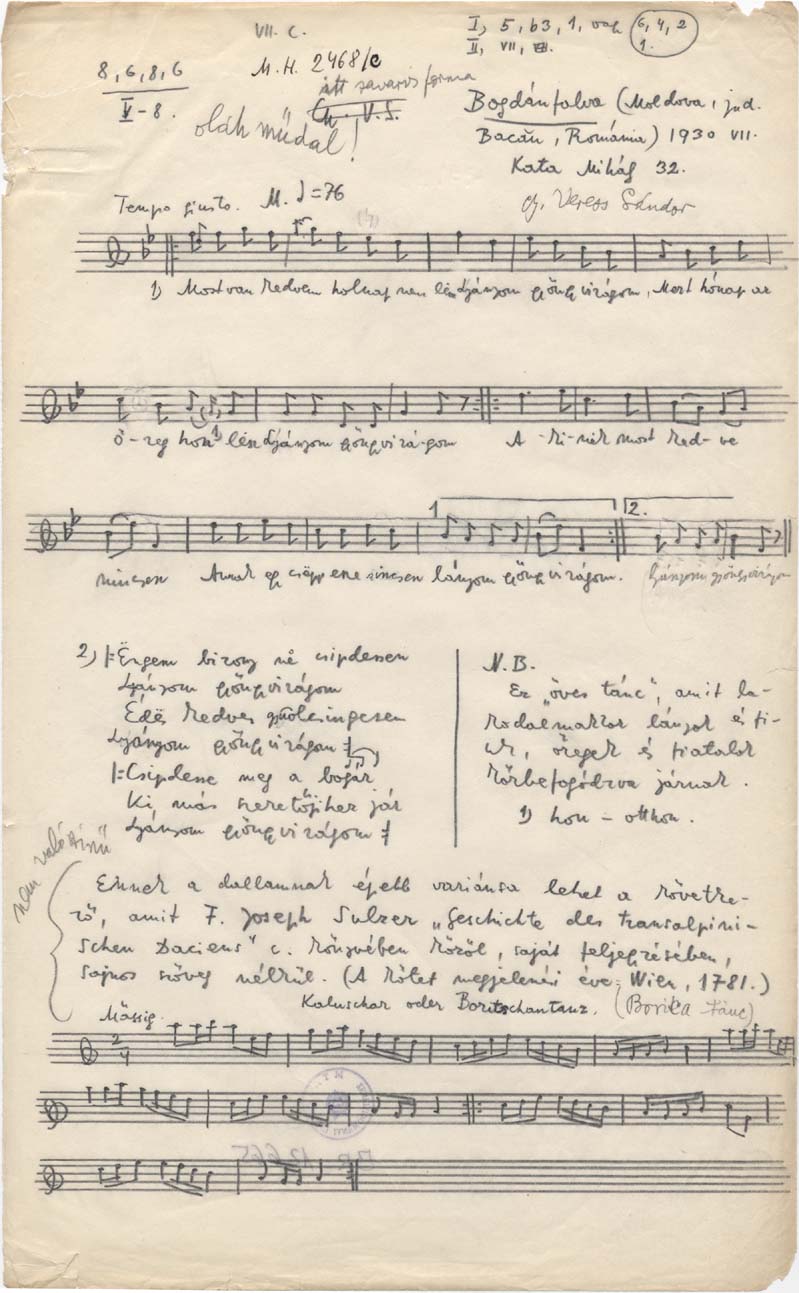 VII. C.
I, 5, b3, 1, vagy 6, 4, 2
1.
II, VII,
8, 6, 8, 6
V-8.
M. H. 2468/c
itt zavaros forma
oláh műdal!
Bogdánfalva (Moldova, jud.
Bacău, România) 1930 VII.
Kata Mihály 32.
gy. Veress Sándor
Tempo giusto. M. ♩=76
1) Most van kedvem holnap nem lesz Lyányom gyöngyvirágom, Mert hónap az
ö-reg hon 1) lesz Lyányom gyöngyvirá-gom A-ki-nek most ked-ve
1. 2.
nincsen Annak egy csöpp esze sincsen lányom gyöngyvirágom. Lyányom gyöngyvirágom
2) |: Engem bizony në csipdessen
Lyányom gyöngyvirágom
Édës kedves gyütcsingesem
Lyányom gyöngyvirágom :|
|: Csipdesse meg a bogár
Ki más szeretőjihez jár
Lyányom gyöngyvirágom :|
N.B.
Ez "öves tánc", amit la-
kodalmakkor lányok és fi-
uk, öregek és fiatalok
körbefogódzva járnak.
1) hon - otthon.
nem valószínű
Ennek a dallamnak épebb variánsa lehet a követke-
ző, amit F. Joseph Sulzer "Geschichte des transalpini-
schen Daciens" c. könyvében közöl, saját feljegyzésében,
sajnos szöveg nélkül. (A kötet megjelenési éve: Wien, 1781.)
Kaluschar oder Boritschantanz. (Borica tánc)
Mässig.
2
4